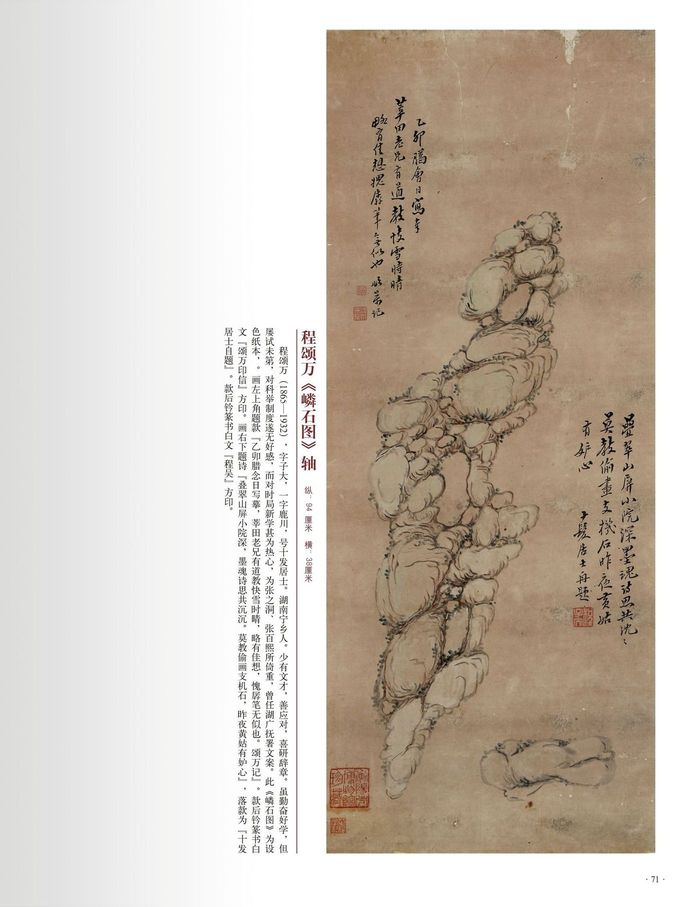 乙卯腊念日写奉
莘田老兄有道教快雪时晴
略有佳想愧孱笔无似也 颂万记
叠翠山屏小院深墨魂诗思共沈沈
莫教偷画支机石昨夜黄姑
有妒心
十发居士再题
程颂万《嶙石图》轴
纵：94 厘米 横：38厘米
程颂万（1865—1932），字子大，一字鹿川，号十发居士。湖南宁乡人。少有文才，善应对，喜研辞章。虽勤奋好学，但
屡试未第，对科举制度遂无好感，而对时局新学甚为热心，为张之洞、张百熙所倚重，曾任湖广抚署文案。此《嶙石图》为设
色纸本，。画左上角题款『乙卯腊念日写摹，莘田老兄有道教快雪时晴，略有佳想，愧孱笔无似也。颂万记』。款后钤篆书白
文『颂万印信』方印。画右下题诗『叠翠山屏小院深，墨魂诗思共沉沉。莫教偷画支机石，昨夜黄姑有妒心』，落款为『十发
居士自题』。款后钤篆书白文『程吴』方印。
· 71 ·